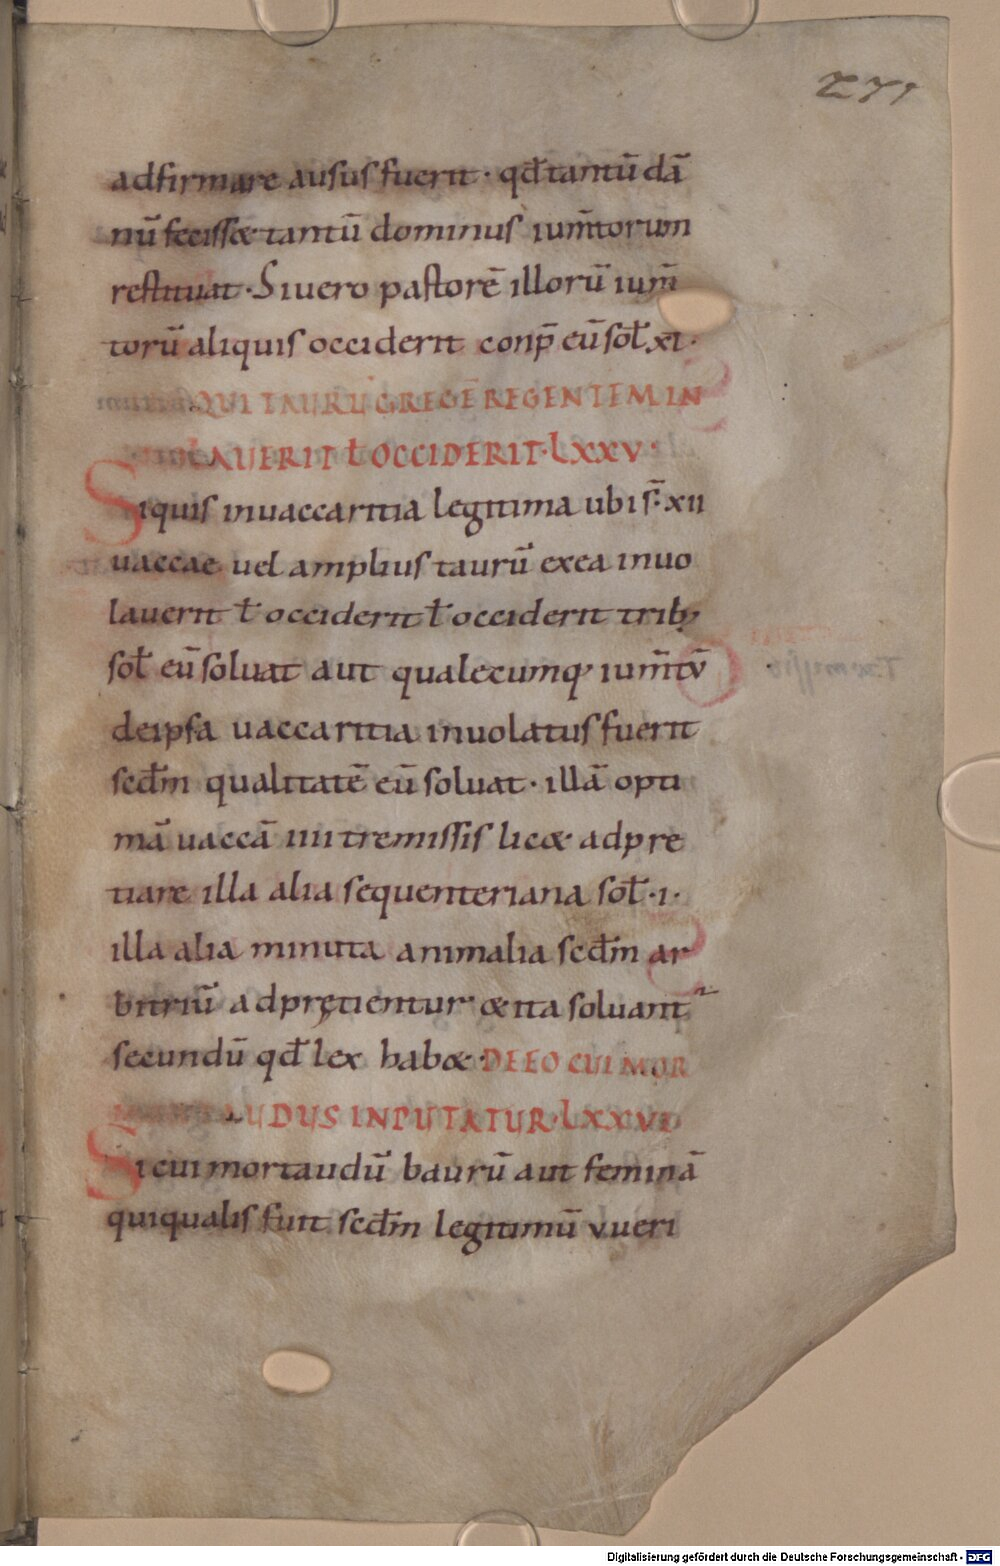 271
adfirmare ausus fuerit · qđ tantū dā
nū fecissæ tantū dominus ium̄torum
restituat · Si uero pastorē illorū ium̄
torū aliquis occiderit conp̄ eū sol̄ xl ·
QUI TAURŪ GREGĒ REGENTEM IN
UOLAUERIT ł OCCIDERIT · LXXV ·
Si quis in uaccaritia legitima ubi s̄· xii
uaccae uel amplius taurū ex ea inuo
lauerit ł occiderit ł occiderit trib;
sol̄ eū soluat aut qualecumq; ium̄tū
de ipsa uaccaritia inuolatus fuerit
secđm qualitatē eū soluat · illā opti
mā uaccā iiii tremissis licæ adpre
tiare illa alia sequenteriana sol̄ · i ·
illa alia minuta animalia secđm ar
bitriū adpręcientur æ ita soluant
secundū qđ lex habæ · DE EO CUI MOR
TAUDUS INPUTATUR · LXXVI
Si cui mortaudū baurū aut feminā
quiqualis fuit secđm legitimū vueri
Digitalisierung gefördert durch die Deutsche Forschungsgemeinschaft - DFG